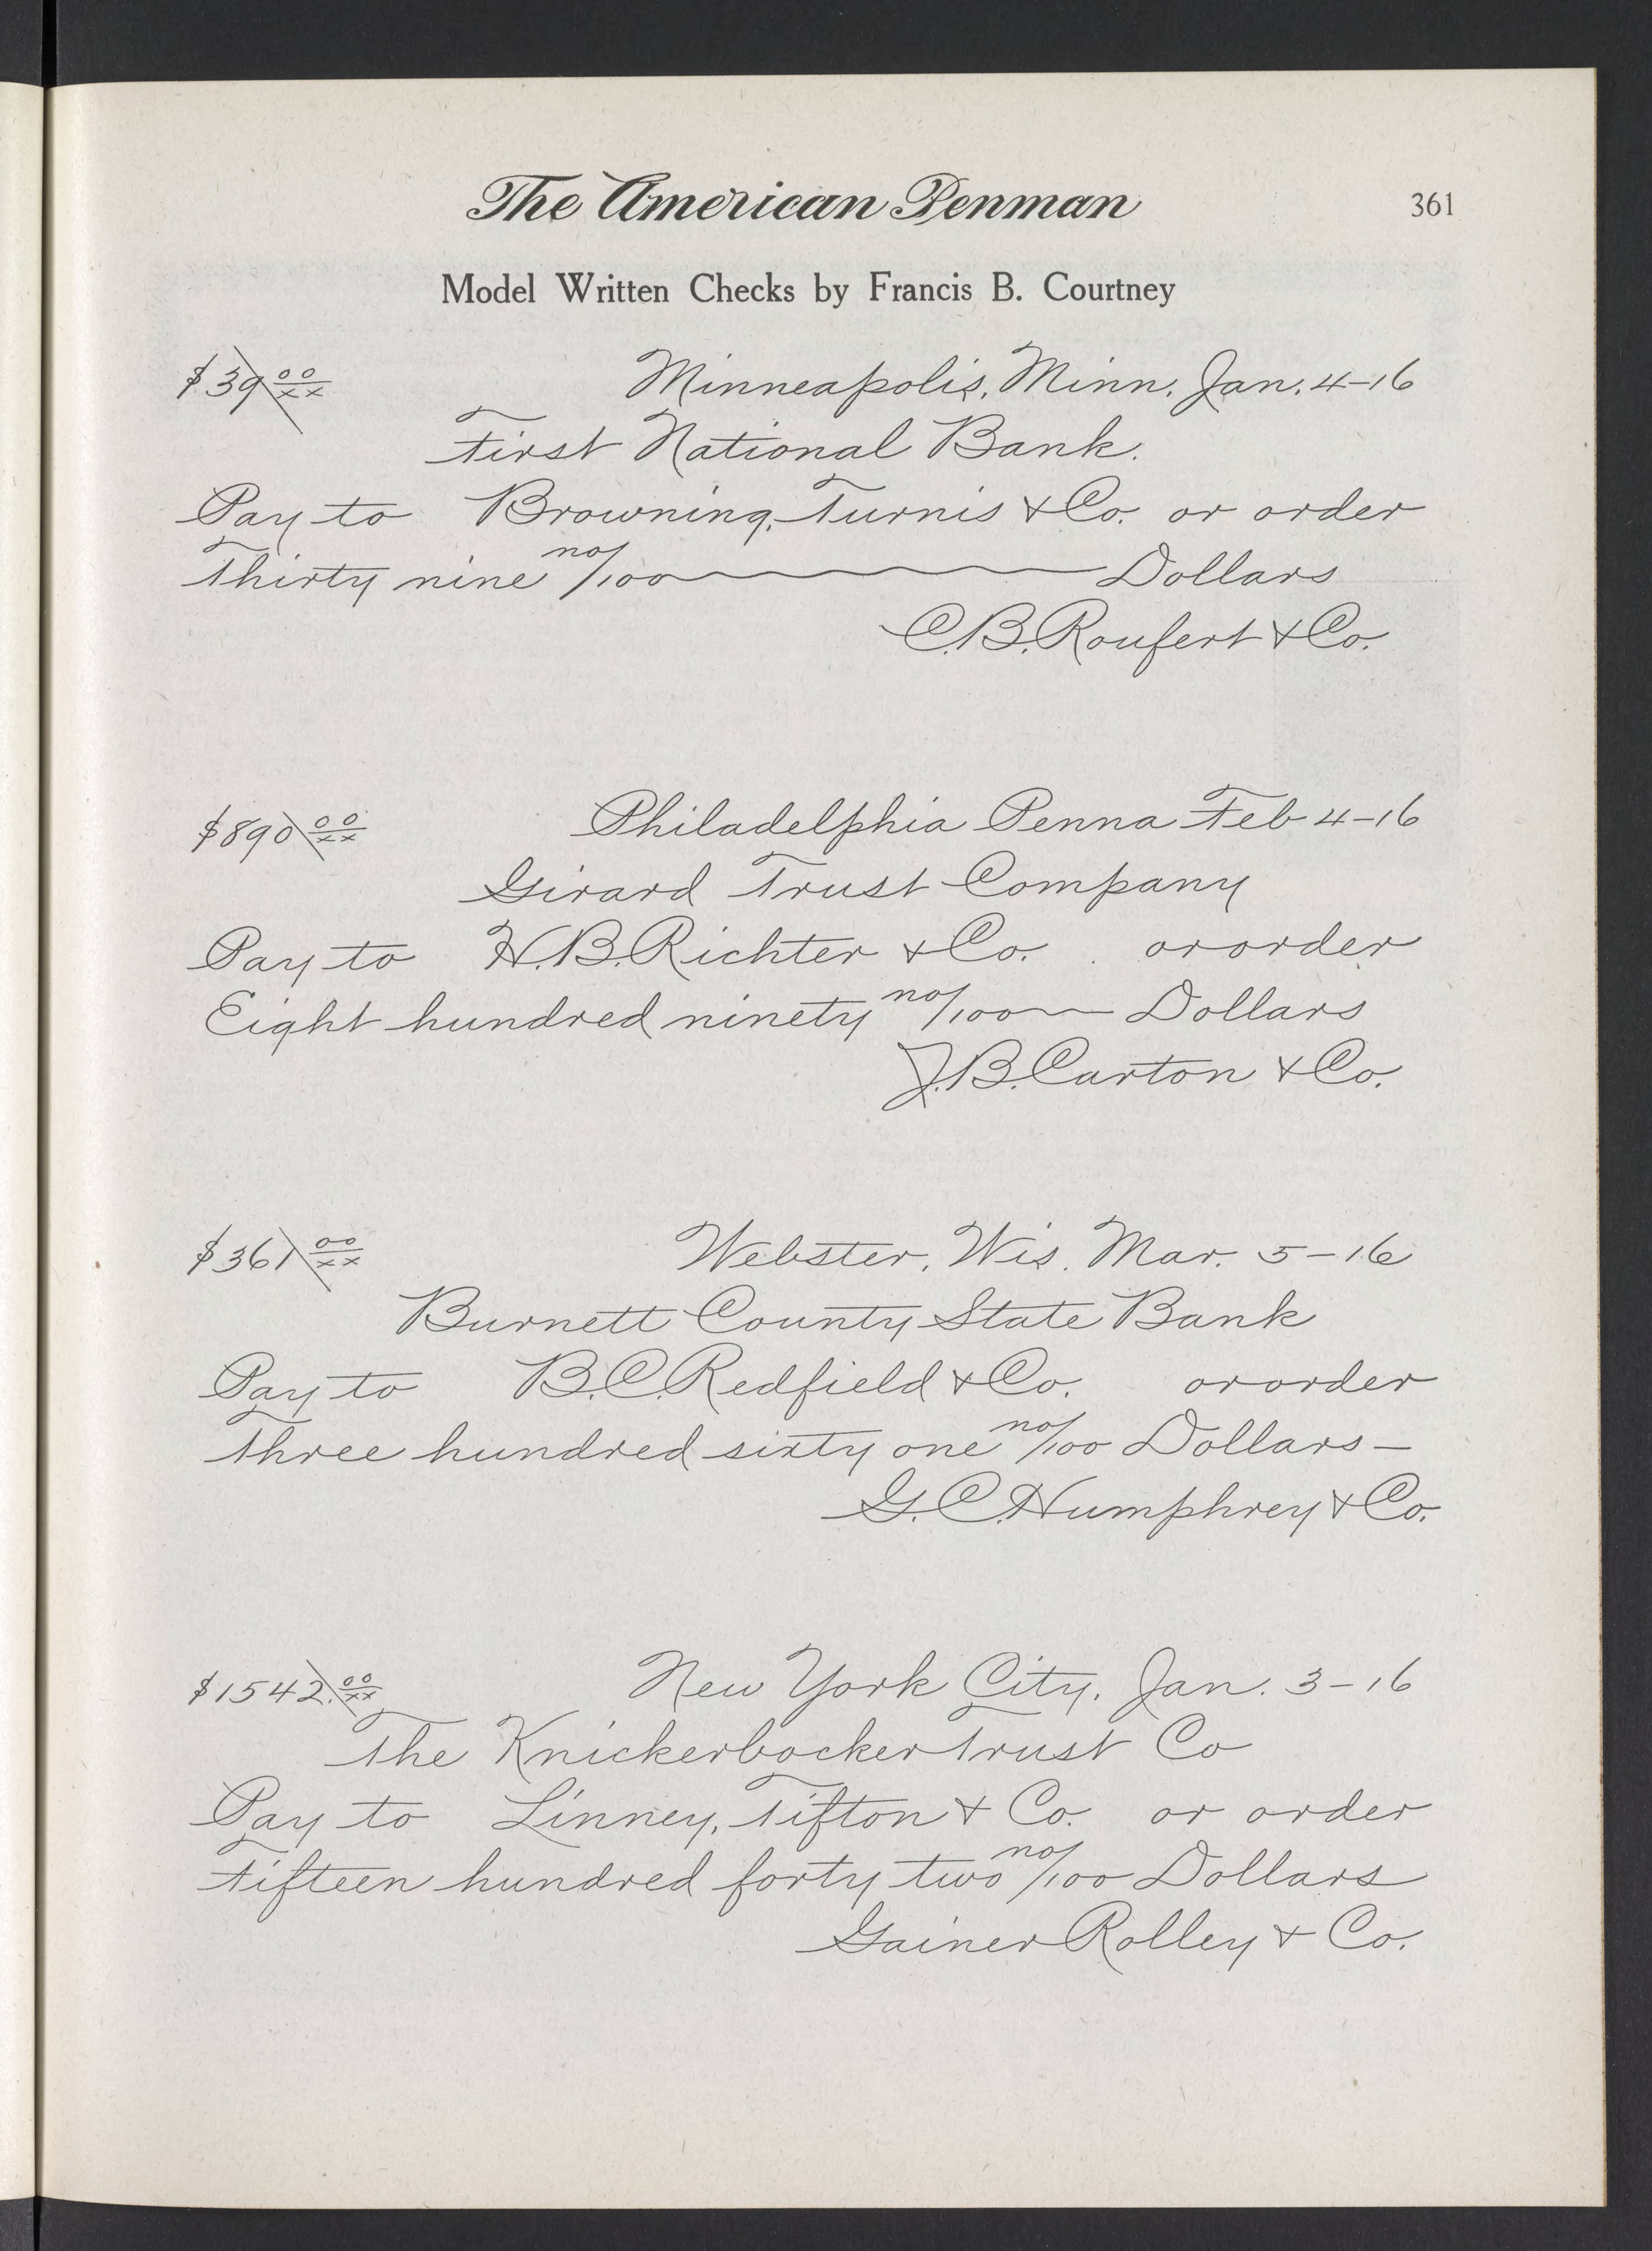 The American Penman 361
Model Written Checks by Francis B. Courtney
$39 00/xx Minneapolis, Minn. Jan. 4-16
First National Bank.
Pay to Browning, Turnis & Co. or order
Thirty nine no/100 Dollars
C.B. Roufert & Co.
$890 00/xx Philadelphia Penna Feb 4-16
Girard Trust Company
Pay to H.B. Richter & Co. or order
Eight hundred ninety no/100 Dollars
J.B. Carton & Co.
$361 00/xx Webster, Wis. Mar. 5-16
Burnett County State Bank
Pay to B.C. Redfield & Co. or order
Three hundred sixty one no/100 Dollars-
G.C. Humphrey & Co.
$1542. 00/xx New York City, Jan. 3-16
The Knickerbocker Trust Co
Pay to Linney, Tifton & Co. or order
Fifteen hundred forty two no/100 Dollars
Gainer Rolley & Co.